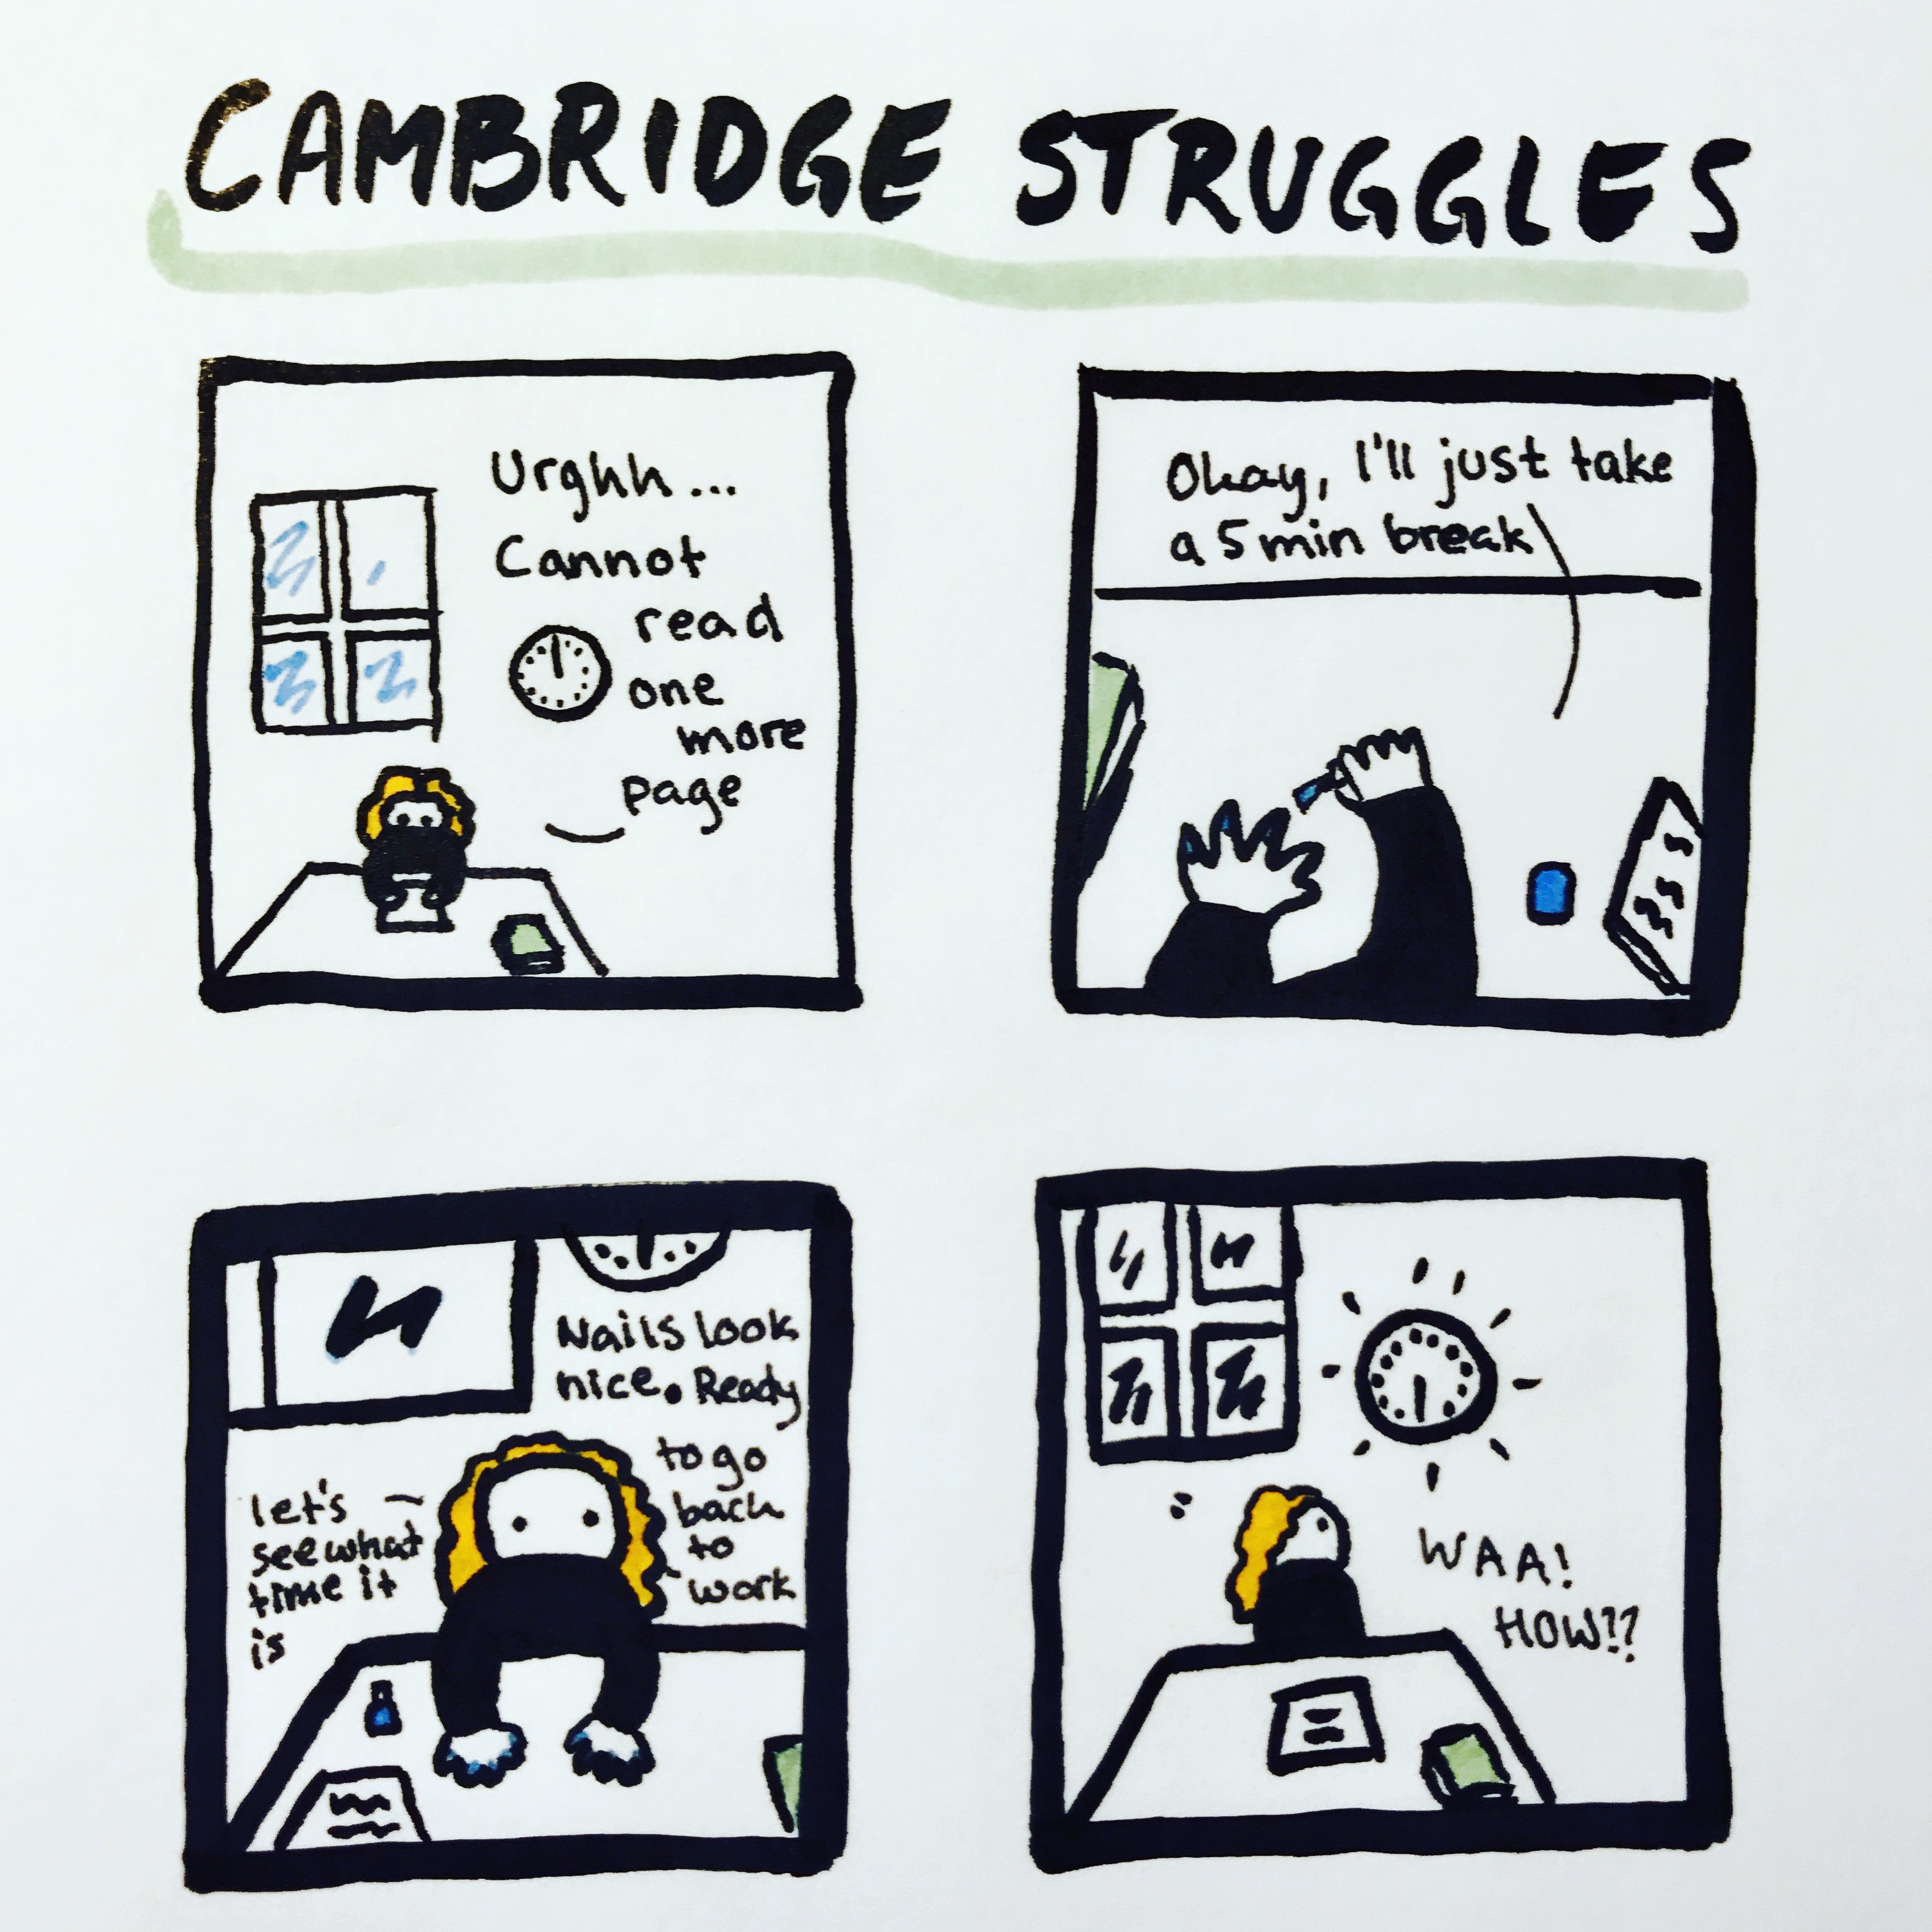 CAMBRIDGE STRUGGLES
Urghh...
Cannot
read
one
more
page
Okay, I'll just take
a 5 min break
Nails look
nice. Ready
to go
back
to
work
let's
see what
time it
is
WAA!
HOW??